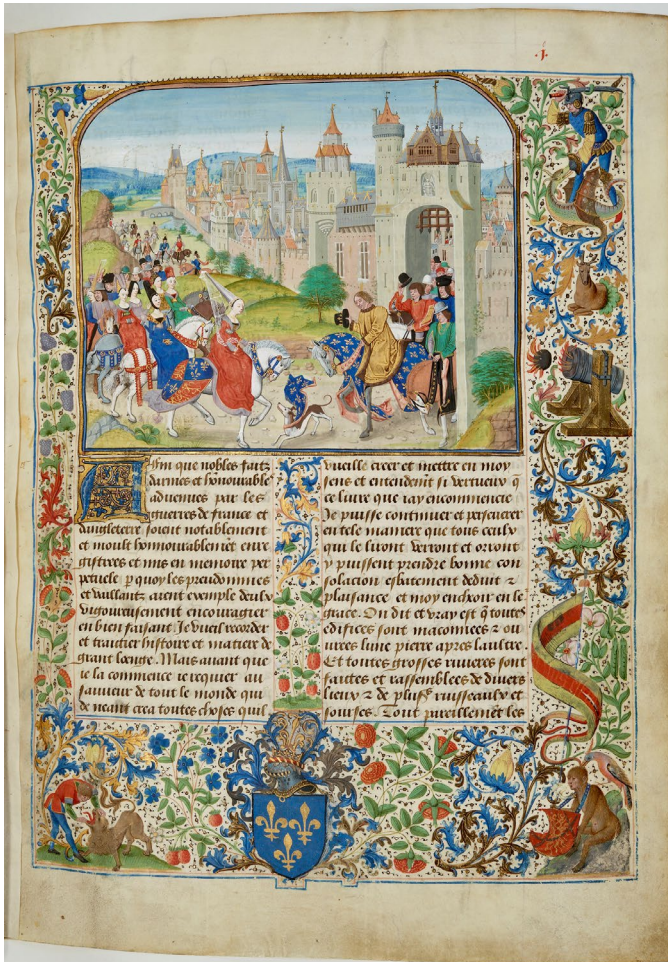 .j.
Afin que nobles faitz
darmes et honnourable
aduenues par les
guerres de france et
dangleterre soient notablement
et moult honnourablement enre
gistrees et mis en memoire per
petuele p quoy les preudommes
et vaillantz aient exemple deulx
vigoureusement encouragier
en bien faisant. Je vueil recorder
et traittier histoire et matiere de
grant loenge. Mais auant que
ie la commence ie requier au
sauueur de tout le monde qui
de neant crea toutes choses quil
vueille creer et mettre en moy
sens et entendemt si vertueux q
ce liure que iay encommencie
Je puisse continuer et perseuerer
en tele maniere que tous ceulx
qui le liront verront et orront
y puissent prendre bonne con
solacion esbatement deduit ⁊
plaisance et moy encheoir en le
grace. On dit et vray est q toutes
edifices sont maconnees ⁊ ou
urees lune pierre apres laultre
Et toutes grosses riuieres sont
faittes et rassemblees de diuers
lieux ⁊ de plusrs ruisseaulx et
sourses. Tout pareillemet les